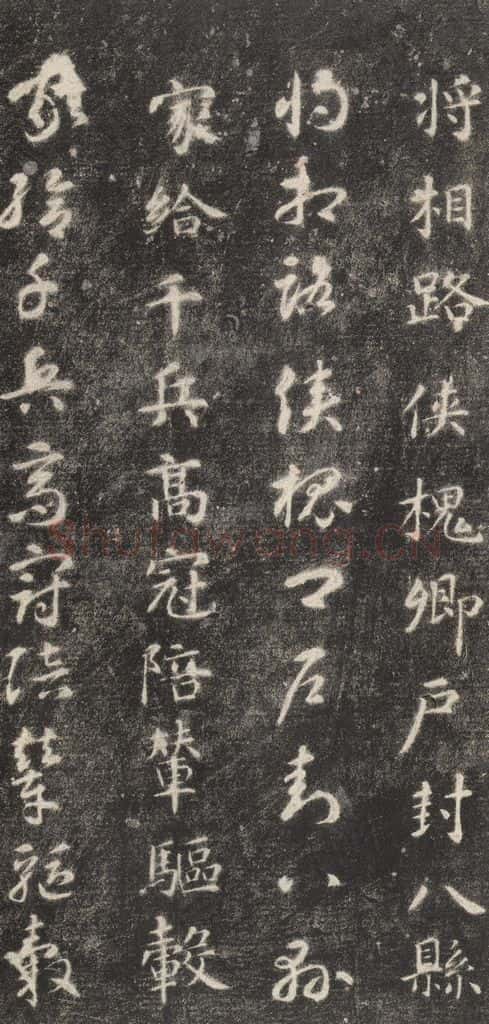 将相路侠槐卿户封八縣
将相路侠槐卿户封八縣
家給千兵高冠陪輦驅轂
家給千兵高冠陪輦驅轂
Shufawang.CN